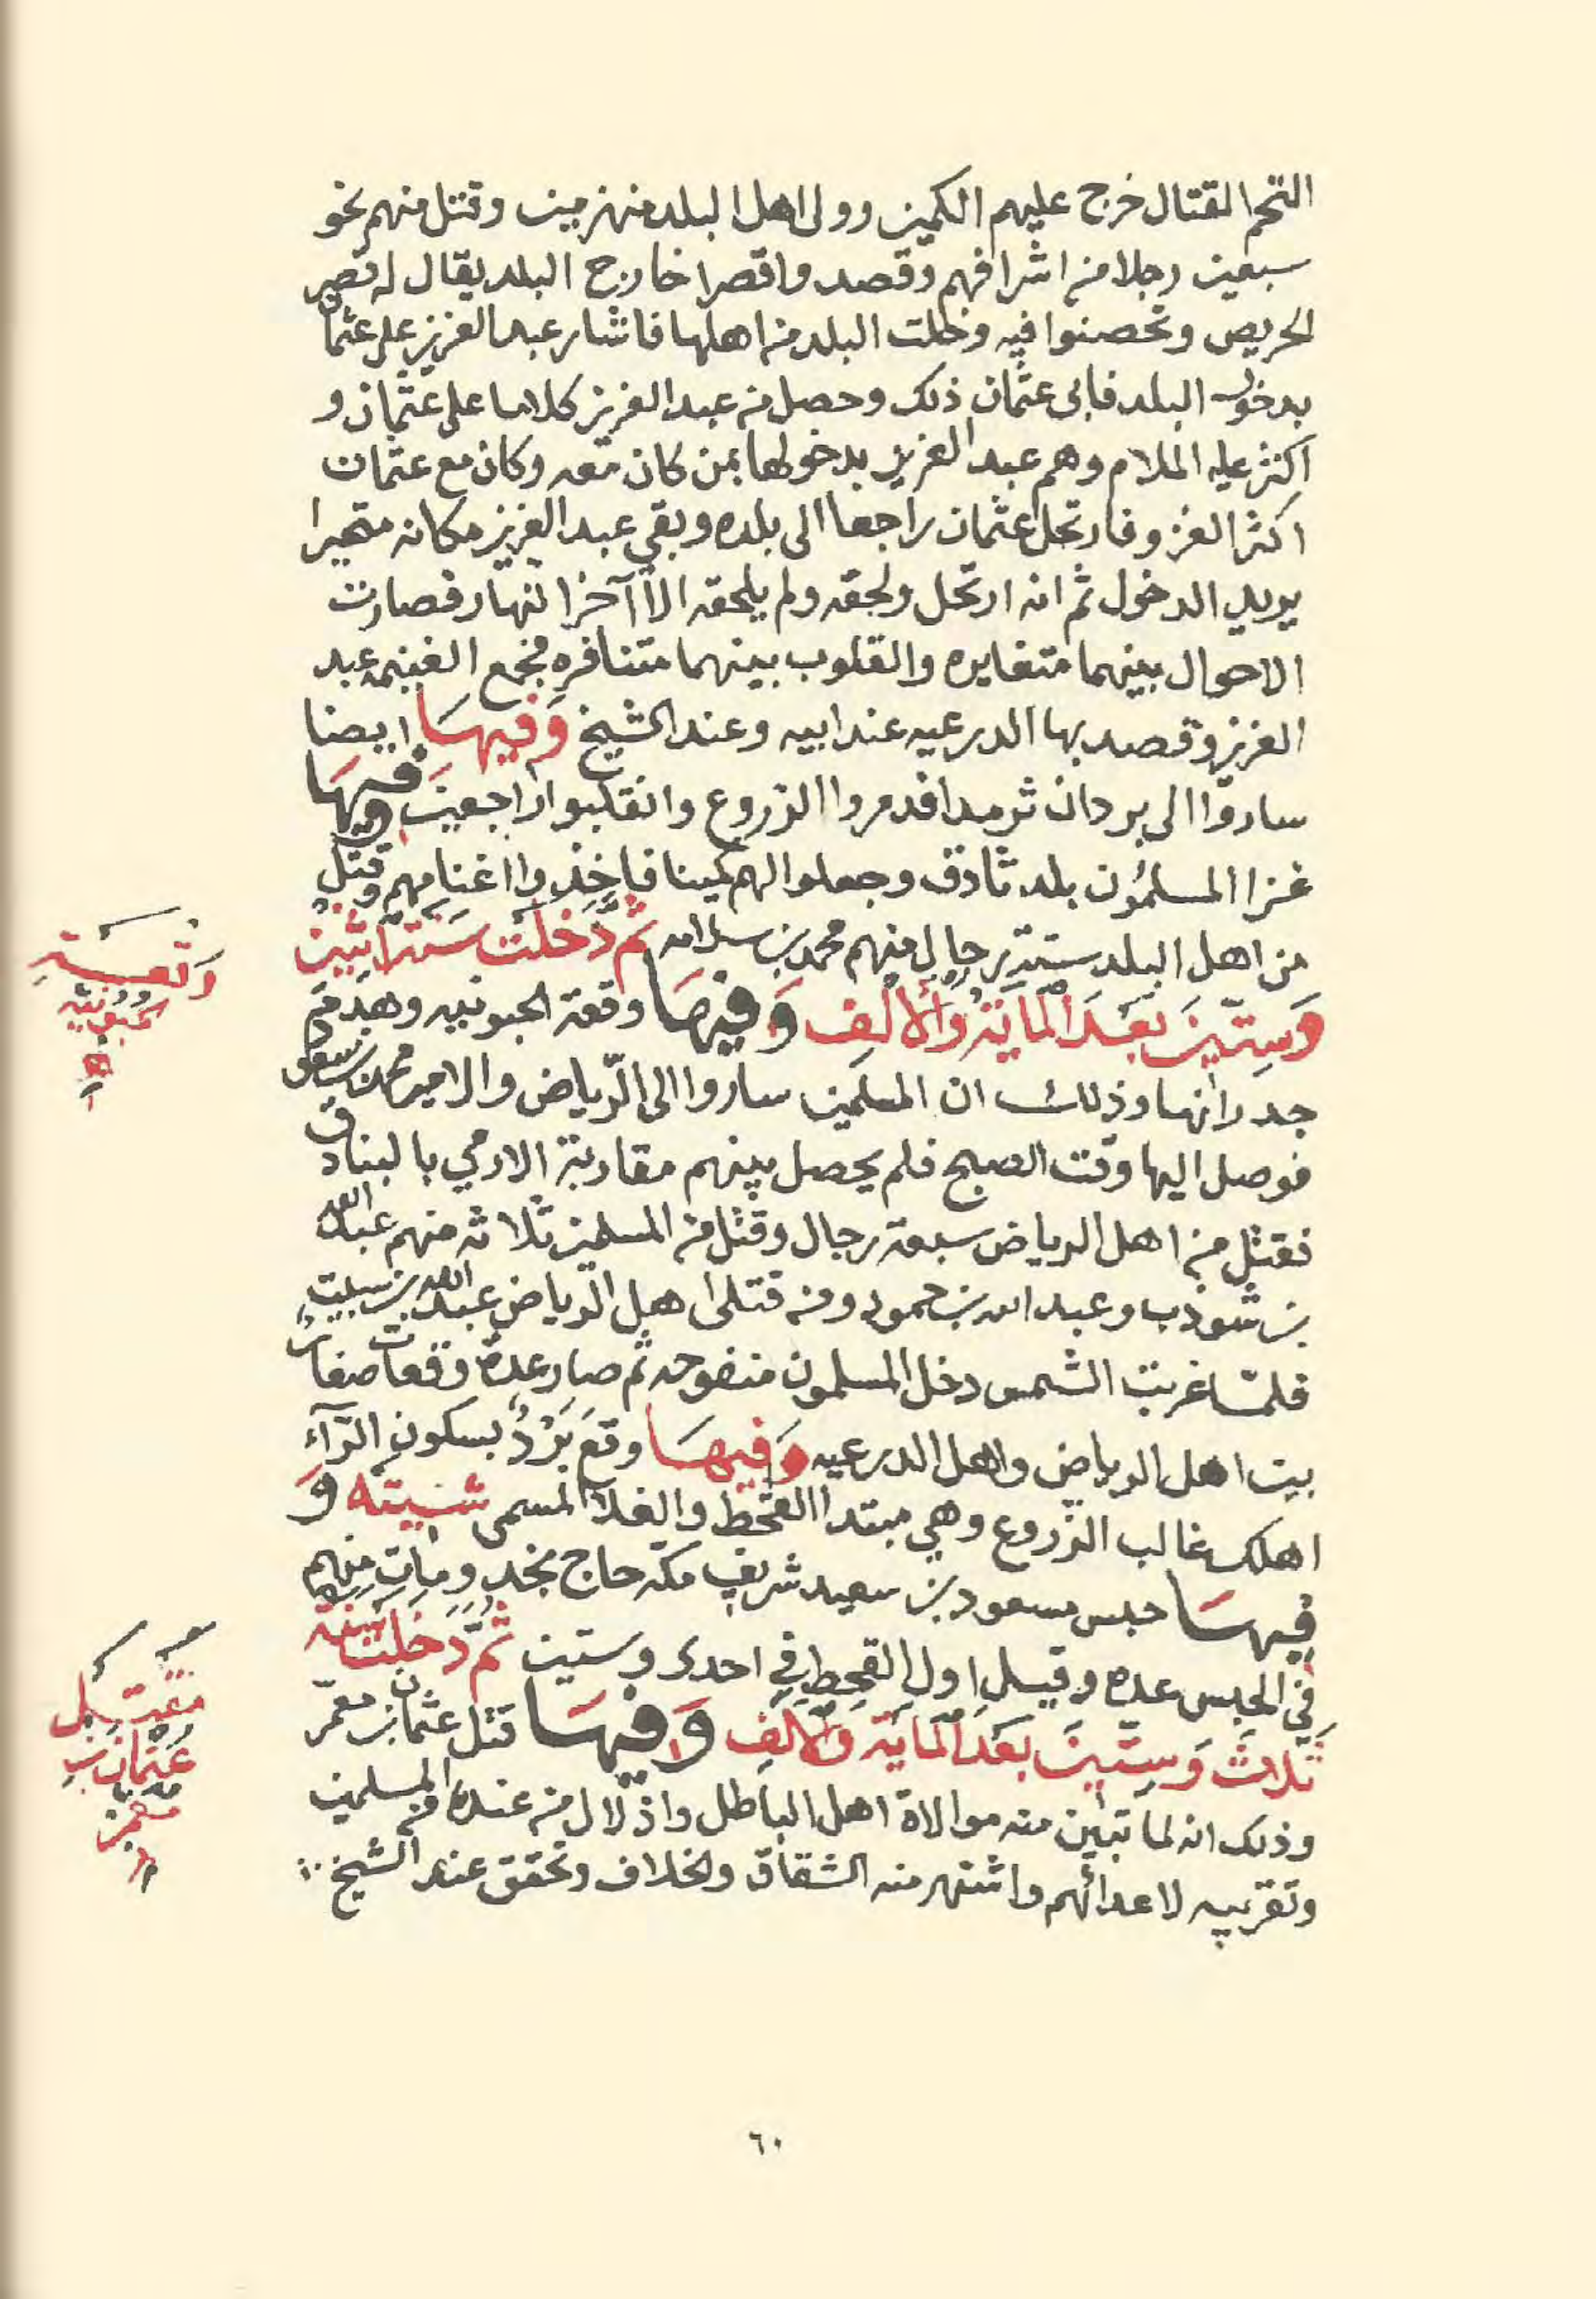 التحم القتال خرج عليهم الكمين وولى اهل البلد منهزمين وقتل منهم نحو
سبعين رجلا من اشرافهم وقصدوا قصرا خارج البلد يقال له قصر
الحريص وتحصنوا فيه وخلت البلد من اهلها فاشار عبد العزيز على عثمان
بدخول البلد فابى عثمان ذلك وحصل من عبد العزيز كلاما على عثمان و
اكثر عليه الملام وهم عبد العزيز بدخولها بمن كان معه وكان مع عثمان
اكثر الغزو فارتحل عثمان راجعا الى بلده وبقي عبد العزيز مكانه متحيرا
يريد الدخول ثم انه ارتحل ولحقه ولم يلحقه الا آخر النهار فصارت
الاحوال بينهما متغايره والقلوب بينهما متنافره فجمع الغنيمه عبد
العزيز وقصد بها الدرعيه عند ابيه وعند الشيخ وَفيهَا ايضا
ساروا الى بردان ثرمدا فدمروا الزروع وانقلبوا راجعين وفيهَا
غزا المسلمُون بلد ثادق وجعلوا لهم كمينا فاخذوا اغنامهم وقتل
من اهل البلد ستة رجال منهم محمد بن سلامه ثم دَخلَت سَنَة اثنين
وَسِتّينَ بَعَدَ المايَة وَالألف وَفيهَا وقعة الحبونيه وهدم
جدرانها وذلك ان المسلمين ساروا الى الرياض والامير محمد بن سعود
فوصل اليها وقت الصبح فلم يحصل بينهم مقاربة الا رمي بالبنادق
فقتل من اهل الرياض سبعة رجال وقتل من المسلمين ثلاثه منهم عبد الله
بن شوذب وعبد الله بن حمود ومن قتلى اهل الرياض عبد الله بن سبيت
فلما غربت الشمس دخل المسلمون منفوحه ثم صار عدة وقعات صغار
بين اهل الرياض واهل الدرعيه وَفيهَا وقع بَرْدُ بسكون الرآء
اهلك غالب الزروع وهي مبتدا القحط والغلا المسمى شيته وَ
فيهَا حبس مسعود بن سعيد شريف مكة حاج نجد ومات منهم
في الحبس عده وقيل اول القحط في احدى وستين ثُمَّ دَخلت سَنة
ثلاث وَسِتّينَ بَعَدَ المايَة وَالألف وَفيهَا قتل عثمان بن معمّر
وذلك انه لما تبين منه موالاة اهل الباطل واذلال من عنده من المسلمين
وتقريبه لاعدائهم واشتهر منه الشقاق والخلاف وتحقق عند الشيخ
وقعة
حبونيه
مقتل
عثمان بن
معمر
٦٠